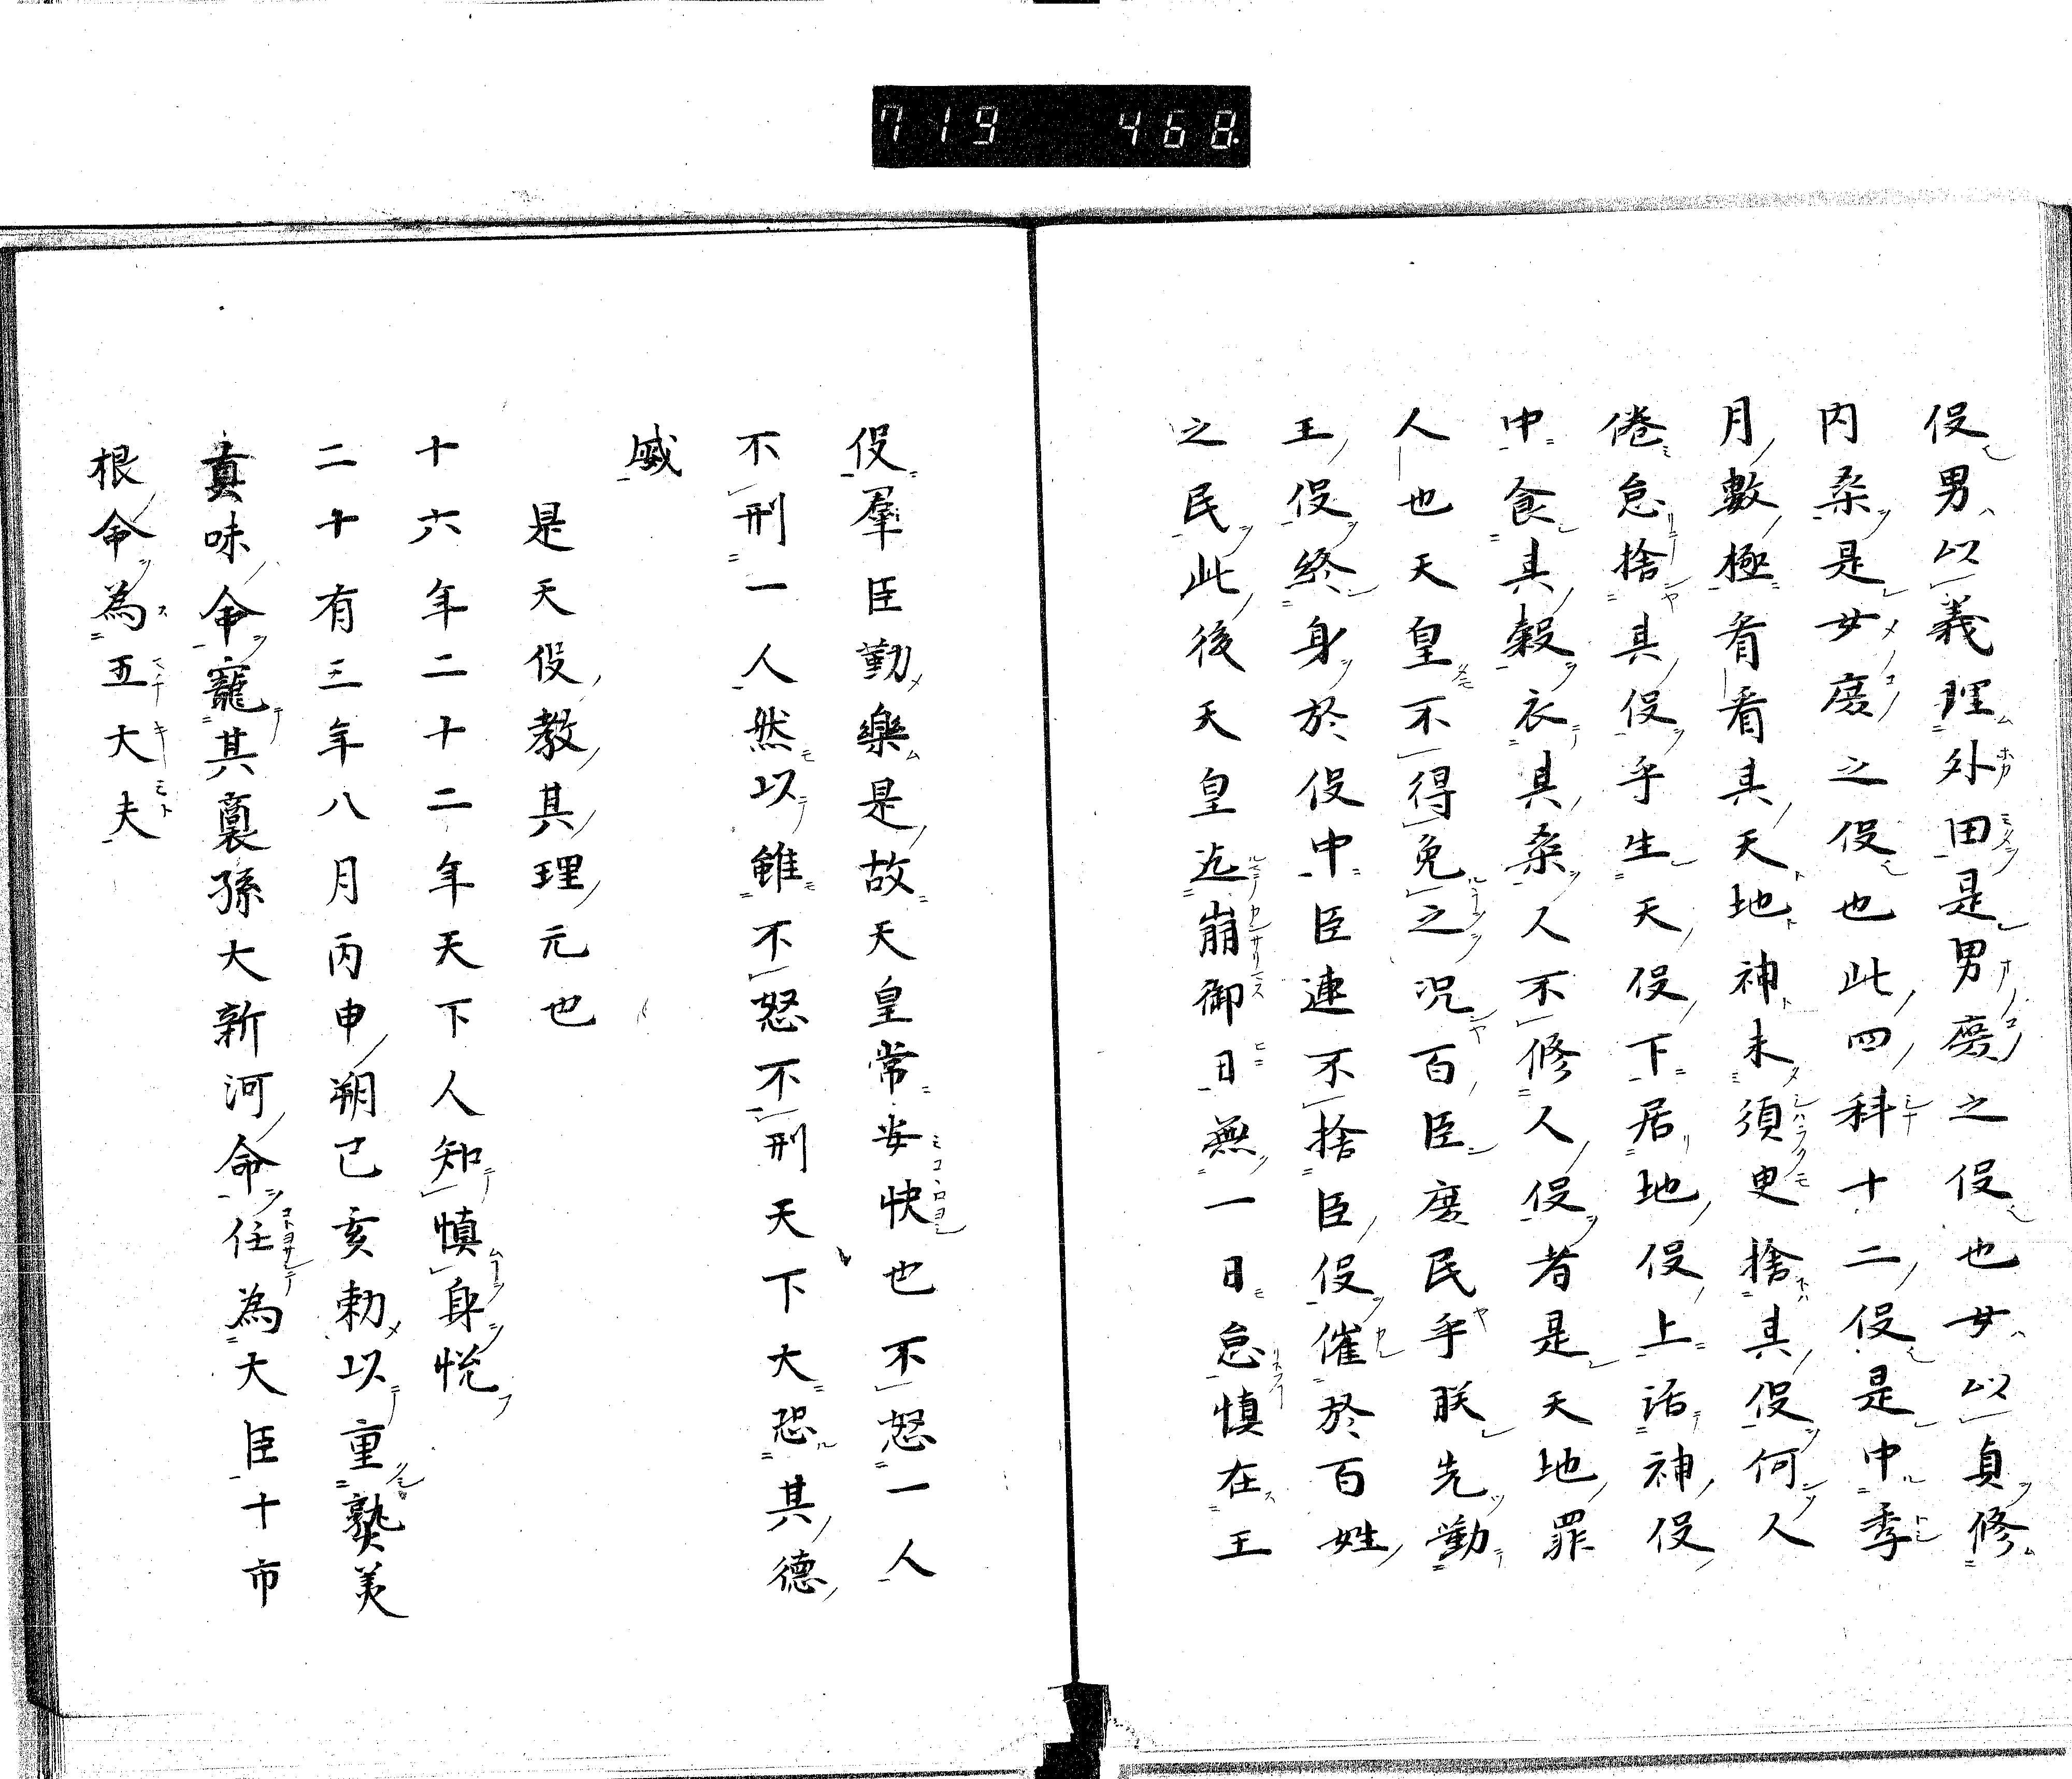 719 468.
役男以義理外田是男麿之役也女以貞修
内桑是女麿之役也此四科十二役是中季
月數極看看其天地神未須曳捨其役何人
倦怠捨其役乎生天役下居地役上活神役
中食其穀衣其桑人不修人役者是天地罪
人也天皇不得免之況百臣麿民乎朕先勤
王役終身於役中臣連不捨臣役催於百姓
之民此後天皇迄崩御日無一日怠慎在王
役羣臣勤樂是故天皇常安快也不怒一人
不刑一人然以雖不怒不刑天下大恐其德
威
是天役教其理元也
十六年二十二年天下人知慎身悦
二十有三年八月丙申朔己亥勅以重塾美
真味命寵其裏孫大新河命任為大臣十市
根命為五大夫